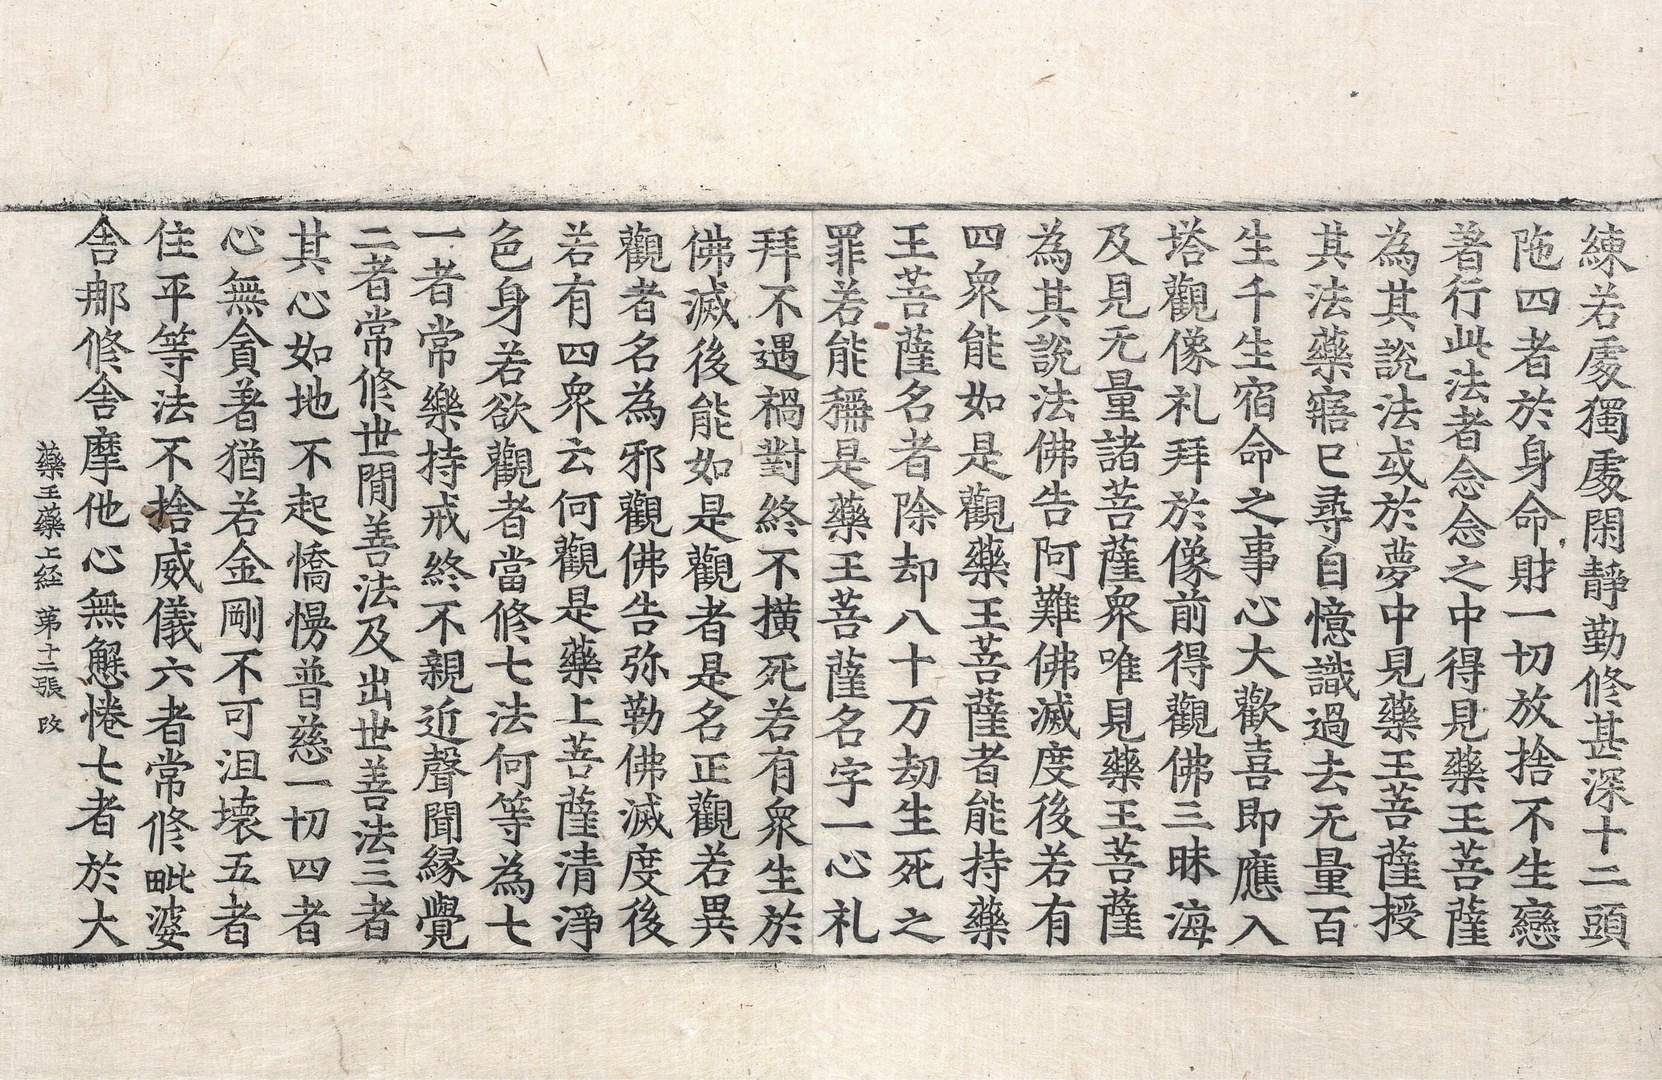 練若處獨處閑靜勤修甚深十二頭
陁四者於身命財一切放捨不生戀
著行此法者念念之中得見藥王菩薩
為其說法或於夢中見藥王菩薩授
其法藥寤已尋自憶識過去无量百
生千生宿命之事心大歡喜即應入
塔觀像礼拜於像前得觀佛三昧海
及見无量諸菩薩衆唯見藥王菩薩
為其說法佛告阿難佛滅度後若有
四衆能如是觀藥王菩薩者能持藥
王菩薩名者除却八十万劫生死之
罪若能稱是藥王菩薩名字一心礼
拜不遇禍對終不橫死若有衆生於
佛滅後能如是觀者是名正觀若異
觀者名為邪觀佛告弥勒佛滅度後
若有四衆云何觀是藥上菩薩清淨
色身若欲觀者當修七法何等為七
一者常樂持戒終不親近聲聞緣覺
二者常修世閒善法及出世善法三者
其心如地不起憍慢普慈一切四者
心無貪著猶若金剛不可沮壞五者
住平等法不捨威儀六者常修毗婆
舍那修舍摩他心無懈惓七者於大
藥王藥上経 第十二張 改